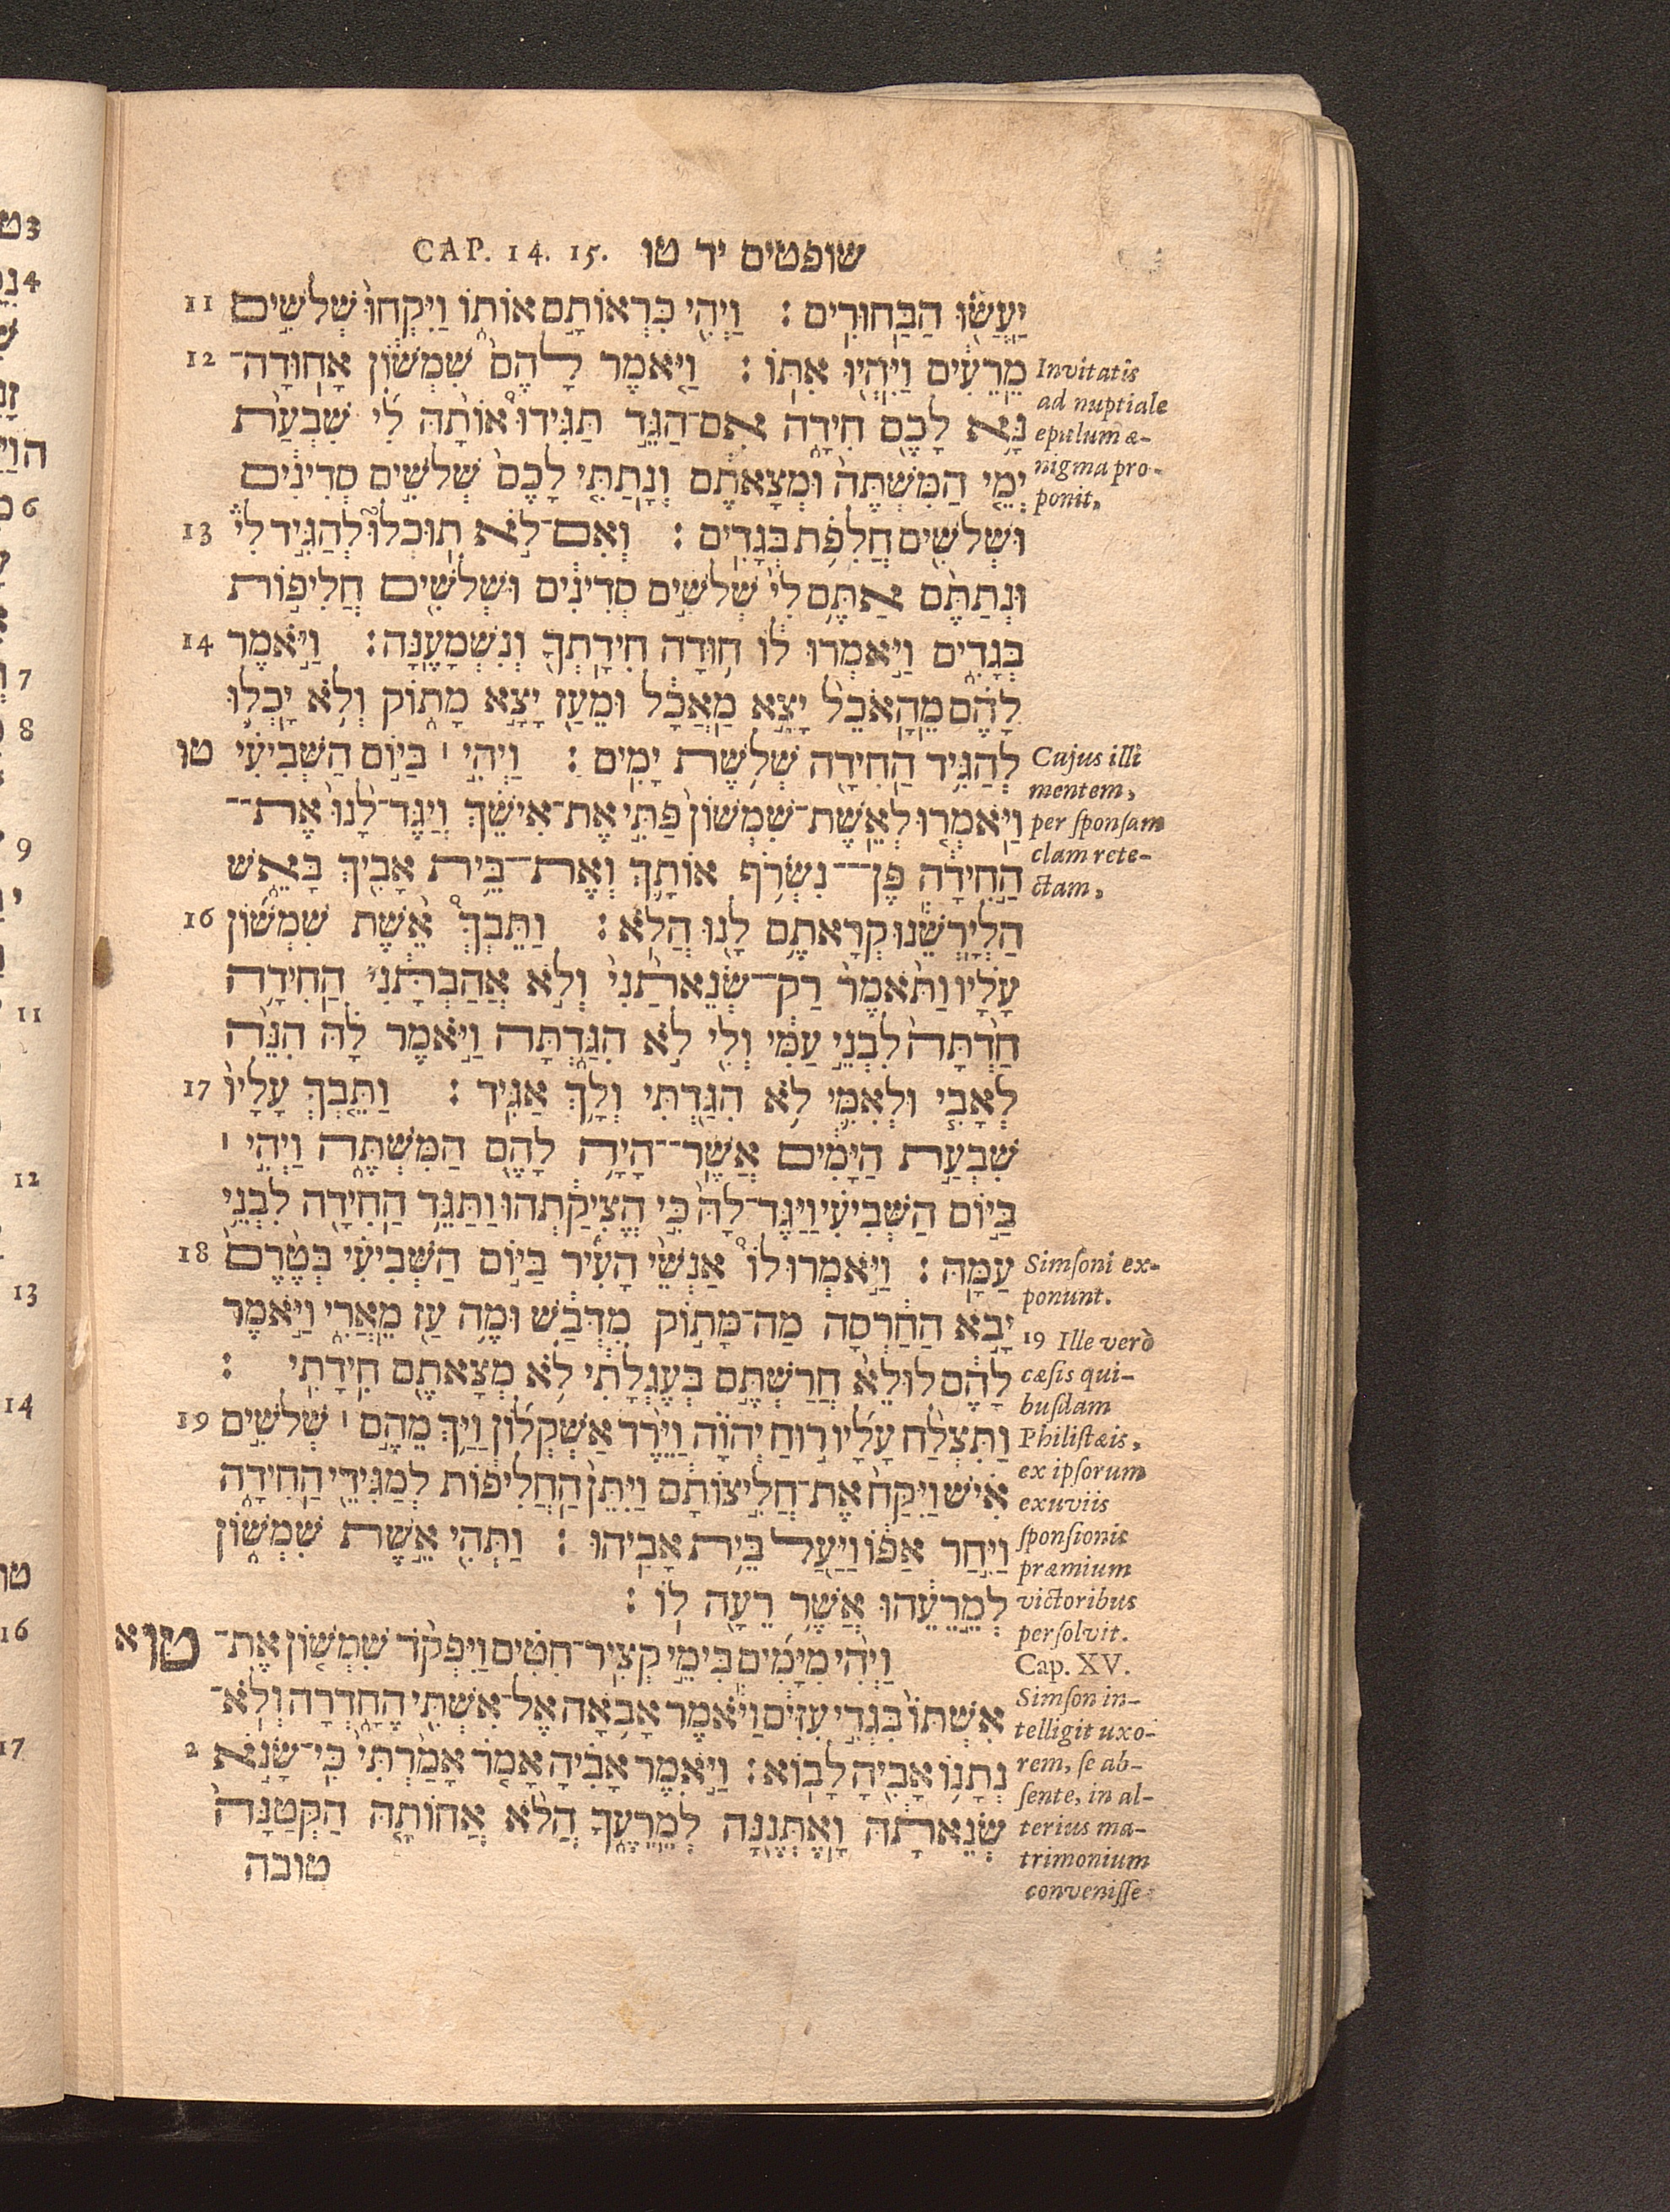 CAP. 14. 15. שופטים יד טו
יַעֲשׂ֖וּ הַבַּחוּרִֽים : וַיְהִ֖י כִּרְאוֹתָ֣ם אוֹת֑וֹ וַיִּקְחוּ֙ שְׁלֹשִׁ֣ים 11
מֵֽרֵעִ֔ים וַיִּֽהְי֖וּ אִתּֽוֹ : וַיֹּ֤אמֶר לָהֶם֙ שִׁמְשׁ֔וֹן אָחֽוּדָה־ 12
נָּ֥א לָכֶ֖ם חִידָ֑ה אִם־הַגֵּ֣ד תַּגִּידוּ֩ אוֹתָ֨הּ לִ֜י שִׁבְעַ֨ת
יְמֵ֤י הַמִּשְׁתֶּה֙ וּמְצָאתֶ֔ם וְנָתַתִּ֤י לָכֶם֙ שְׁלֹשִׁ֣ים סְדִינִ֔ים
וּשְׁלֹשִׁ֖ים חֲלִפֹ֥ת בְּגָדִֽים : וְאִם־לֹ֣א תֽוּכְלוּ֮ לְהַגִּ֣יד לִי֒ 13
וּנְתַתֶּ֨ם אַתֶּ֥ם לִי֙ שְׁלֹשִׁ֣ים סְדִינִ֔ים וּשְׁלֹשִׁ֖ים חֲלִיפ֣וֹת
בְּגָדִ֑ים וַיֹּ֣אמְרוּ ל֔וֹ ח֥וּדָה חִידָתְךָ֖ וְנִשְׁמָעֶֽנָּה : וַיֹּ֣אמֶר 14
לָהֶ֗ם מֵהָֽאֹכֵל֙ יָצָ֣א מַֽאֲכָ֔ל וּמֵעַ֖ז יָצָ֣א מָת֑וֹק וְלֹ֥א יָכְל֛וּ
לְהַגִּ֥יד הַחִידָ֖ה שְׁלֹ֥שֶׁת יָמִֽים : וַיְהִ֣י ׀ בַּיּ֣וֹם הַשְּׁבִיעִ֗י טו
וַיֹּאמְר֤וּ לְאֵֽשֶׁת־שִׁמְשׁוֹן֙ פַּתִּ֣י אֶת־אִישֵׁ֗ךְ וְיַגֶּד־לָ֙נוּ֙ אֶת־
הַ֣חִידָ֔ה פֶּן־נִשְׂרֹ֥ף אוֹתָ֛ךְ וְאֶת־בֵּ֥ית אָבִ֖יךְ בָּאֵ֑שׁ
הַלְיָרְשֵׁ֕נוּ קְרָאתֶ֥ם לָ֖נוּ הֲלֹֽא : וַתֵּבְךְּ֩ אֵ֨שֶׁת שִׁמְשׁ֜וֹן 16
עָלָ֗יו וַתֹּ֙אמֶר֙ רַק־שְׂנֵאתַ֙נִי֙ וְלֹ֣א אֲהַבְתָּ֔נִי הַֽחִידָ֥ה
חַ֙דְתָּה֙ לִבְנֵ֣י עַמִּ֔י וְלִ֖י לֹ֣א הִגַּ֑דְתָּה וַיֹּ֣אמֶר לָ֗הּ הִנֵּ֨ה
לְאָבִ֧י וּלְאִמִּ֛י לֹ֥א הִגַּ֖דְתִּי וְלָ֥ךְ אַגִּֽיד : וַתֵּ֤בְךְּ עָלָיו֙ 17
שִׁבְעַ֣ת הַיָּמִ֔ים אֲשֶׁר־הָיָ֥ה לָהֶ֖ם הַמִּשְׁתֶּ֑ה וַיְהִ֣י ׀
בַּיּ֣וֹם הַשְּׁבִיעִ֗י וַיַּגֶּד־לָהּ֙ כִּ֣י הֱצִיקַ֔תְהוּ וַתַּגֵּ֥ד הַחִידָ֖ה לִבְנֵ֥י
עַמָּֽהּ : וַיֹּ֣אמְרוּ לוֹ֩ אַנְשֵׁ֨י הָעִ֜יר בַּיּ֣וֹם הַשְּׁבִיעִ֗י בְּטֶ֙רֶם֙ 18
יָבֹ֣א הַחַ֔רְסָה מַה־מָּת֣וֹק מִדְּבַ֔שׁ וּמֶ֥ה עַ֖ז מֵאֲרִ֑י וַיֹּ֣אמֶר
לָהֶ֔ם לוּלֵא֙ חֲרַשְׁתֶּ֣ם בְּעֶגְלָתִ֔י לֹ֥א מְצָאתֶ֖ם חִידָתִֽי :
וַתִּצְלַ֨ח עָלָ֜יו ר֣וּחַ יְהוָ֗ה וַיֵּ֨רֶד אַשְׁקְל֜וֹן וַיַּ֥ךְ מֵהֶ֣ם ׀ שְׁלֹשִׁ֣ים 19
אִ֗ישׁ וַיִּקַּח֙ אֶת־חֲלִ֣יצוֹתָ֔ם וַיִּתֵּן֙ הַחֲלִיפ֔וֹת לְמַגִּידֵ֖י הַחִידָ֑ה
וַיִּ֣חַר אַפּ֔וֹ וַיַּ֖עַל בֵּ֥ית אָבִֽיהוּ : וַתְּהִ֖י אֵ֣שֶׁת שִׁמְשׁ֑וֹן
לְמֵ֣רֵעֵ֔הוּ אֲשֶׁ֥ר רֵעָ֖ה לֽוֹ :
וַיְהִ֨י מִיָּמִ֜ים בִּימֵ֣י קְצִיר־חִטִּ֗ים וַיִּפְקֹ֨ד שִׁמְשׁ֤וֹן אֶת־ טו א
אִשְׁתּוֹ֙ בִּגְדִ֣י עִזִּ֔ים וַיֹּ֕אמֶר אָבֹ֥אָה אֶל־אִשְׁתִּ֖י הֶחָ֑דְרָה וְלֹֽא־
נְתָנ֥וֹ אָבִ֖יהָ לָבֽוֹא : וַיֹּ֣אמֶר אָבִ֗יהָ אָמֹ֤ר אָמַ֙רְתִּי֙ כִּֽי־שָׂנֹ֣א 2
שְׂנֵאתָ֔הּ וָאֶתְּנֶ֖נָּה לְמֵרֵעֶ֑ךָ הֲלֹ֨א אֲחוֹתָ֤הּ הַקְּטַנָּה֙
טובה
Invitatis
ad nuptiale
epulum æ-
nigma pro-
ponit,
Cujus illi
mentem,
per ſponſam
clam rete-
ctam,
Simſoni ex-
ponunt.
19 Ille verò
cæſis qui-
buſdam
Philiſtæis,
ex ipſorum
exuviis
ſponſionis
præmium
victoribus
perſolvit.
Cap. XV.
Simſon in-
telligit uxo-
rem, ſe ab-
ſente, in al-
terius ma-
trimonium
conveniſſe